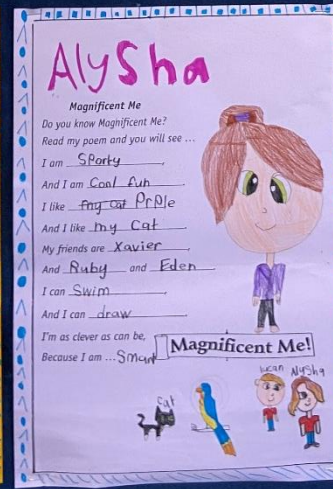 AlySha
Magnificent Me
Do you know Magnificent Me?
Read my poem and you will see ...
I am Sporty.
And I am Cool fun.
I like my cat PrPle
And I like my Cat.
My friends are Xavier,
And Ruby and Eden
I can Swim,
And I can draw
I'm as clever as can be,
Because I am ... Smart
Magnificent Me!
lucan AlySha
cat